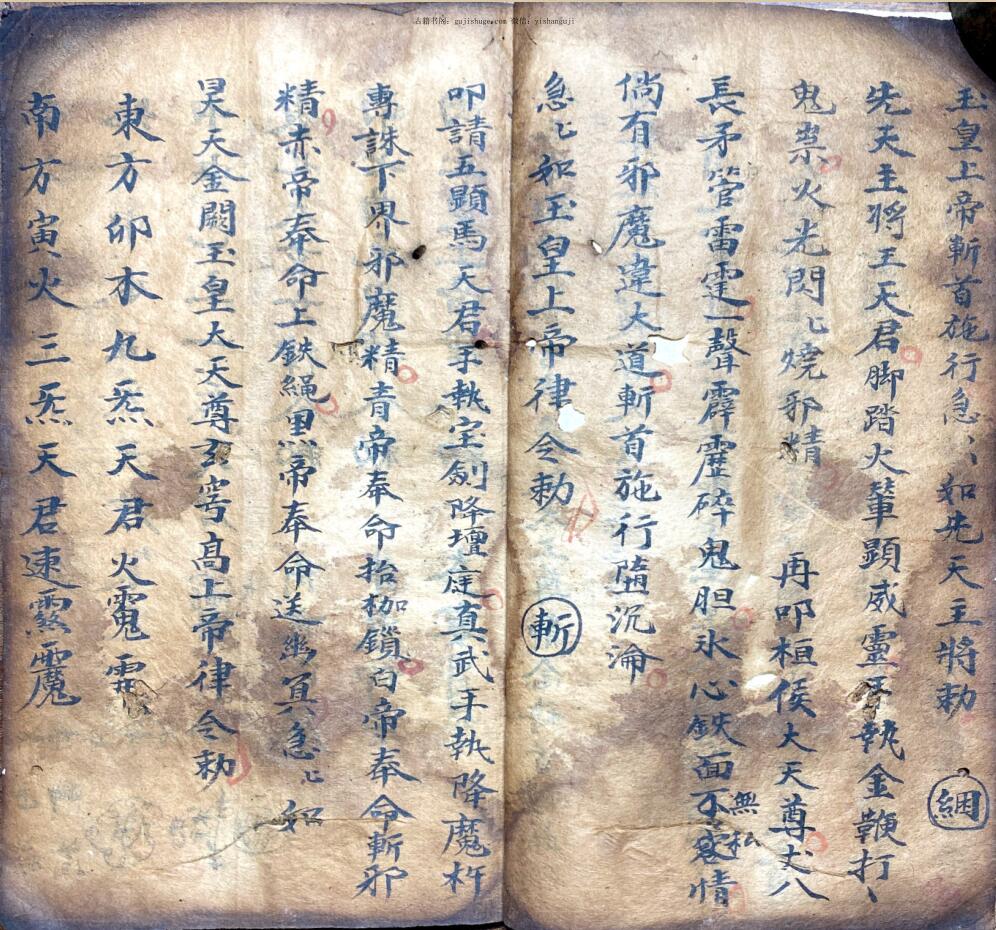 古籍书阁：gujishuge.com 微信：yishanguji
玉皇上帝斬首施行急〻如先天主將勅 綑
先天主將王天君脚踏火輦顯威靈手執金鞭打〻
鬼祟火光閃〻燒邪精 再叩桓侯大天尊丈八
長矛管雷霆一聲霹靂碎鬼胆氷心鉄面不容情
無私
倘有邪魔違大道斬首施行墮沉淪
急〻如玉皇上帝律令勅 斬
叩請五顕馬天君手執宝劍降壇庭真武手執降魔杵
專誅下界邪魔精青帝奉命抬枷鎖白帝奉命斬邪
精赤帝奉命上鉄繩黑帝奉命送幽冥急〻如
昊天金闕玉皇大天尊玄穹高上帝律令勅
東方卯木九炁天君火
南方寅火三炁天君速